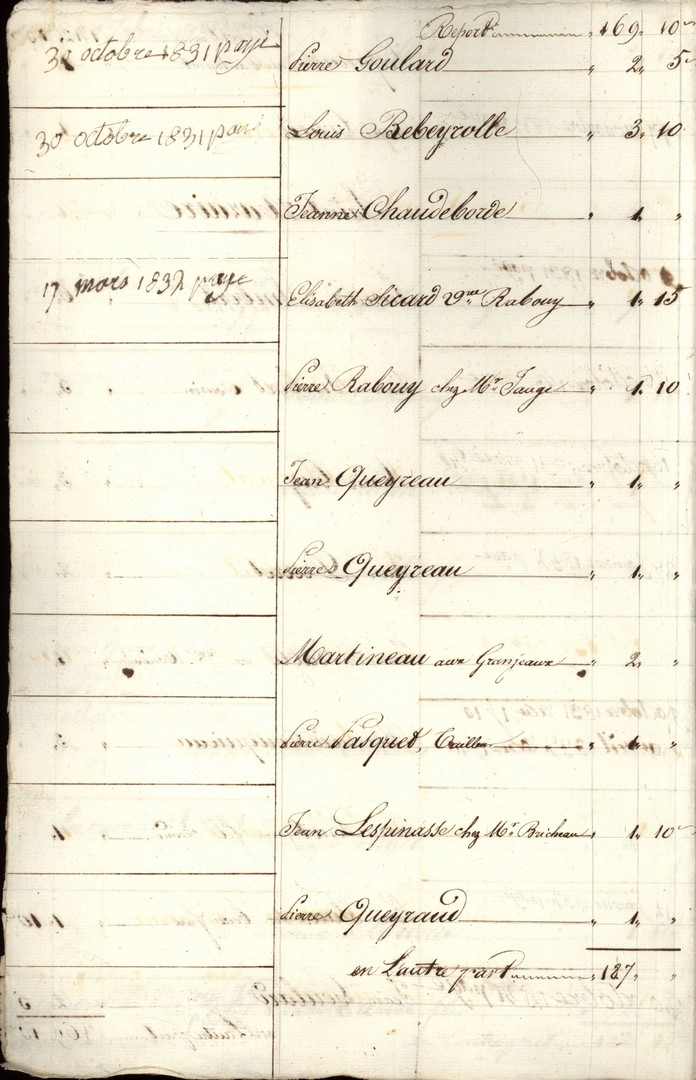 Report " 169 " 10
30 octobre 1831 payé Pierre Goulard " 2 " 5
30 octobre 1831 payé Louis Rebeyrolle " 3 " 10
Jeanne Chaudeborde " 1 " "
17 mars 1832 payé Elisabeth Sicard Vve Rabouy " 1 " 15
Pierre Rabouy chez Mr. Tauge " 1 " 10
Jean Queyreau " 1 " "
Pierre Queyreau " 1 " "
Martineau aux Granjeaux " 2 " "
Pierre Pasquet, Tailleur " 1 " "
Jean Lespinasse chez Mr. Bricheau " 1 " 10
Pierre Queyraud " 1 " "
en L'autre part " 187 " "